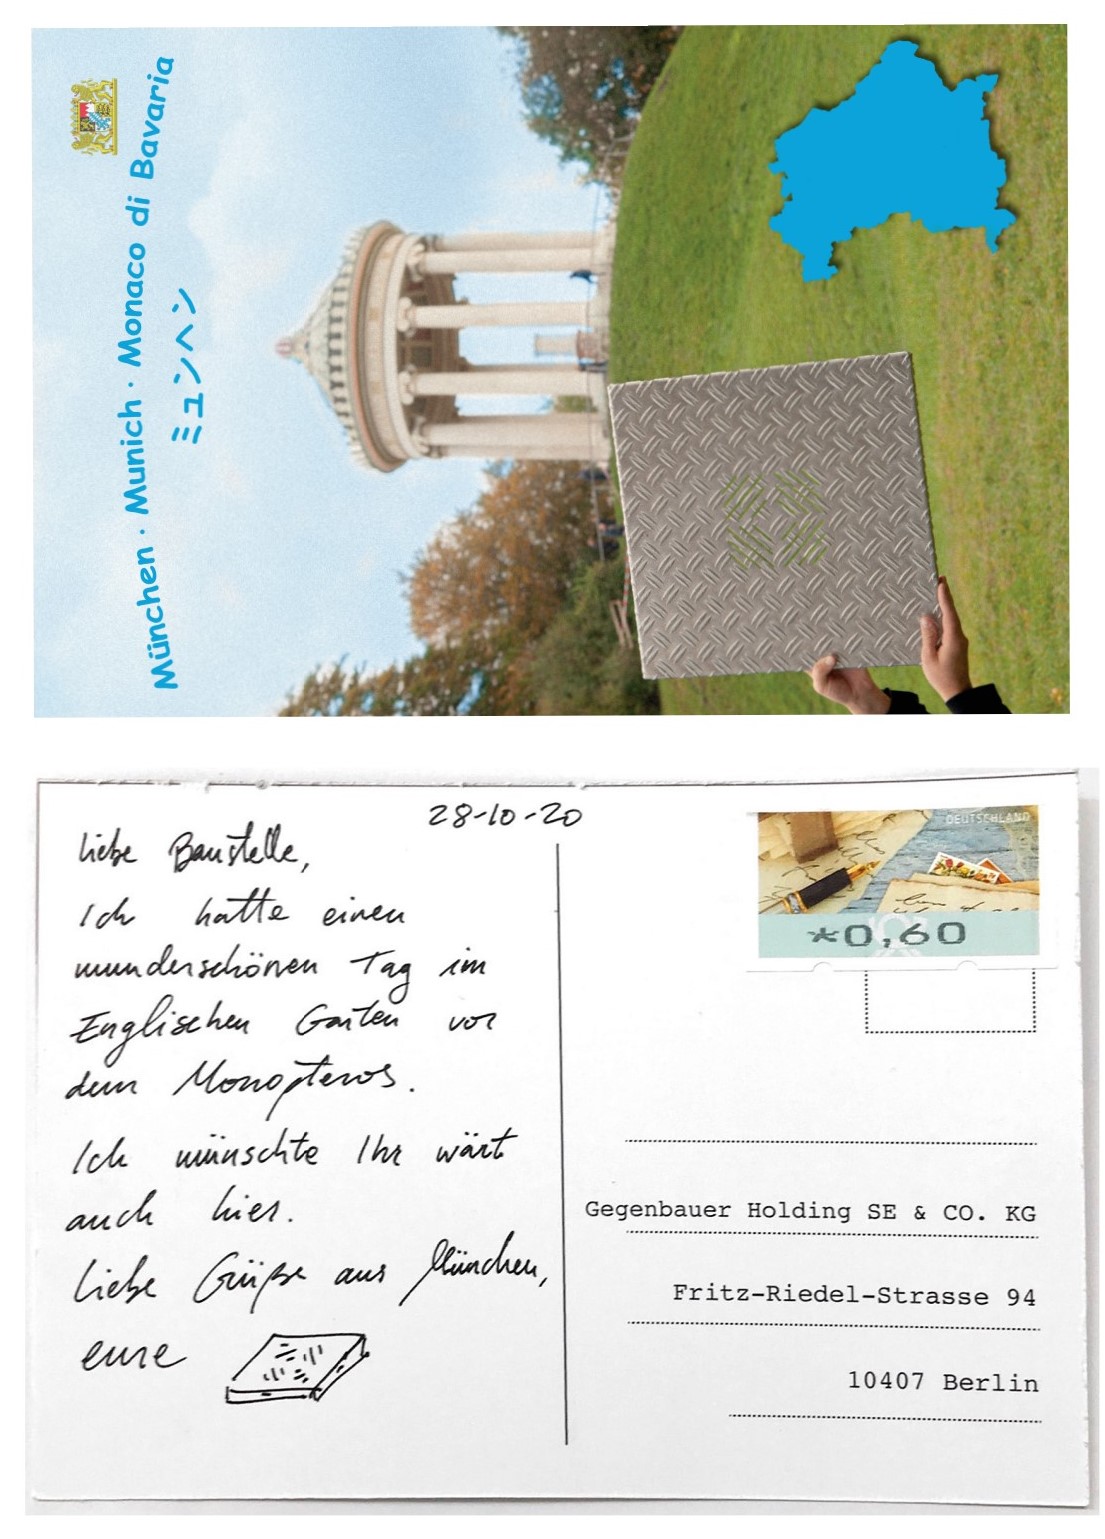 München · Munich · Monaco di Bavaria
ミュンヘン
28-10-20
liebe Baustelle,
Ich hatte einen
wunderschönen Tag im
Englischen Garten vor
dem Monopteros.
Ich wünschte Ihr wärt
auch hier.
Liebe Grüße aus München,
eure
DEUTSCHLAND
*0,60
Gegenbauer Holding SE & CO. KG
Fritz-Riedel-Strasse 94
10407 Berlin